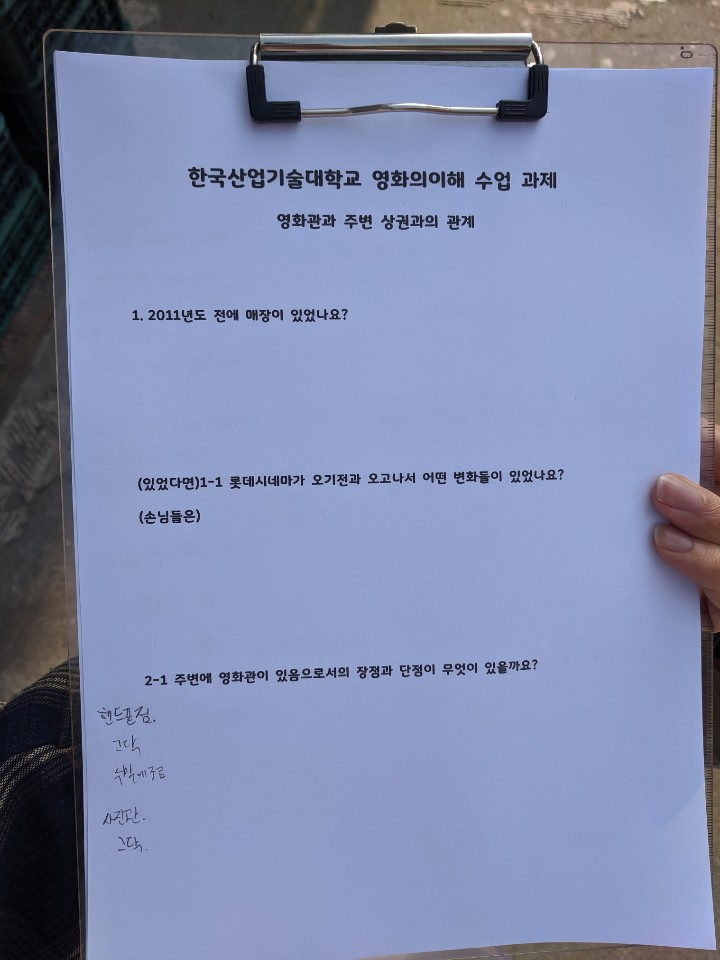 한국산업기술대학교 영화의이해 수업 과제
영화관과 주변 상권과의 관계
1. 2011년도 전에 매장이 있었나요?
(있었다면)1-1 롯데시네마가 오기전과 오고나서 어떤 변화들이 있었나요?
(손님들은)
2-1 주변에 영화관이 있음으로서의 장점과 단점이 무엇이 있을까요?
핸드폰점.
그닥
사진관.
그닥.